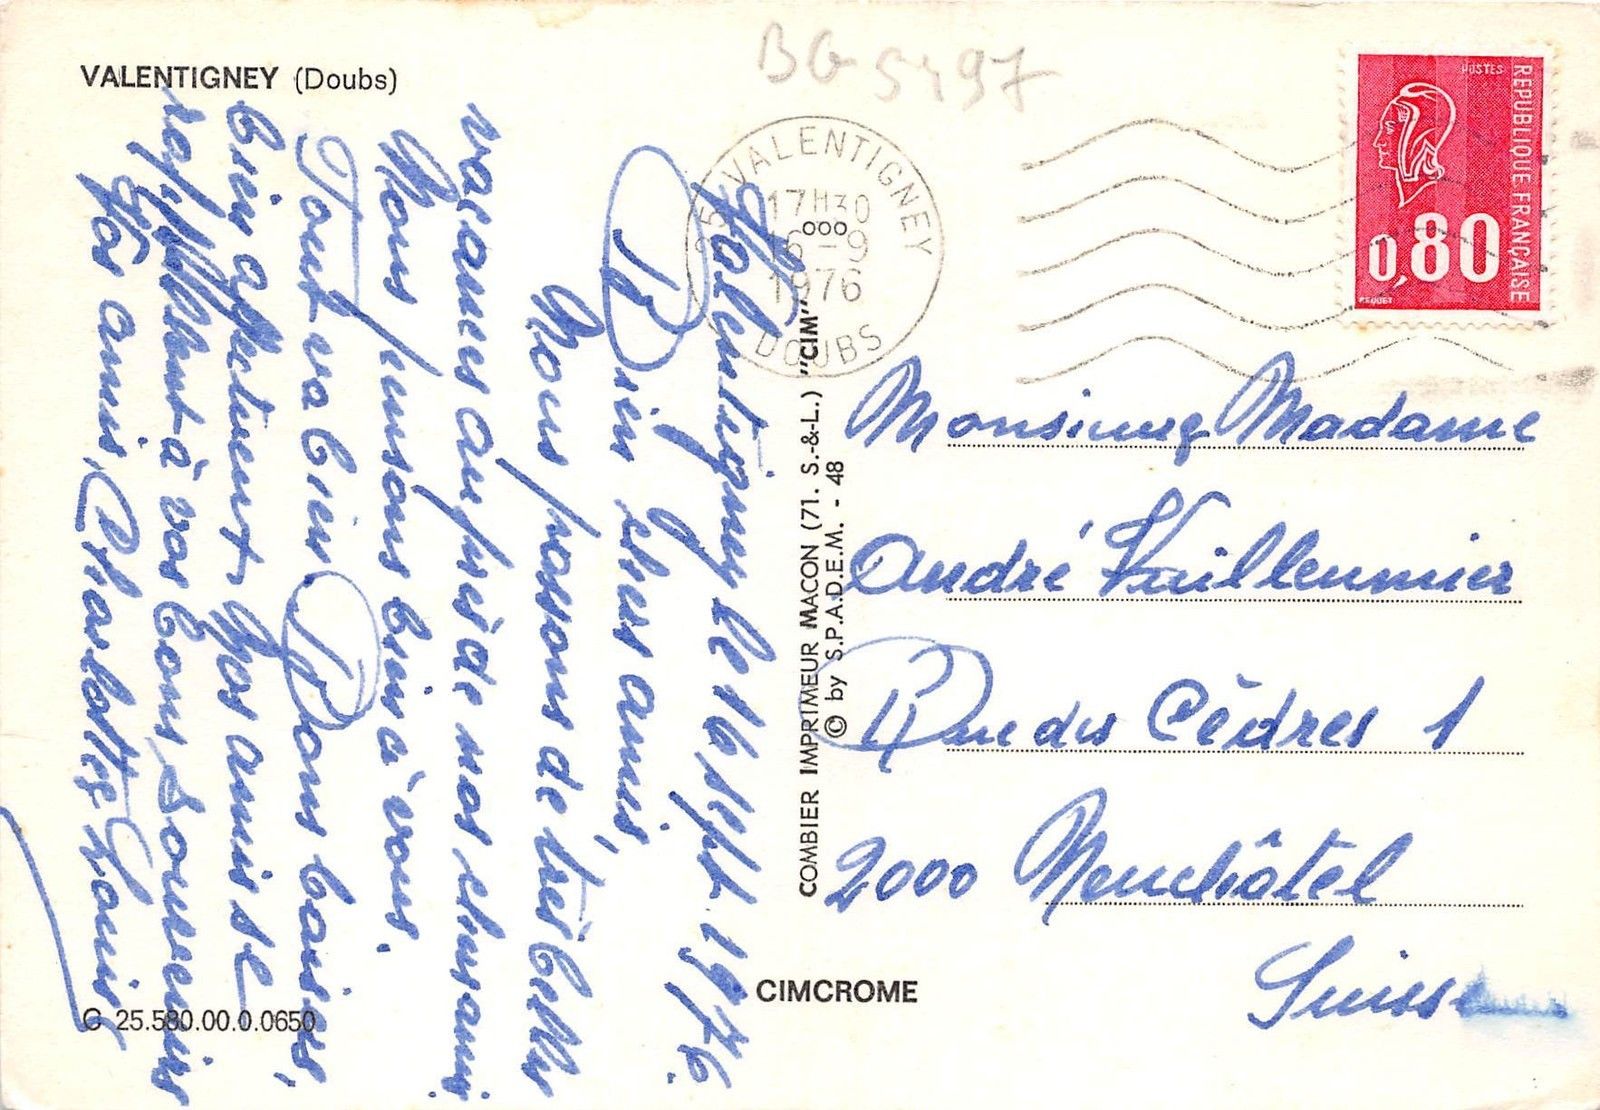 VALENTIGNEY (Doubs)
BG 5497
25 VALENTIGNEY
17H30
16-9
1976
DOUBS
POSTES
REPUBLIQUE FRANÇAISE
0,80
BEQUET
Valentigney le 16 Sept. 1976.
Bien chers amis,
Nous passons de très belles
vacances auprès de nos chers amis.
Nous pensons bien à vous.
Tout va bien. Bons baisers,
bien affectueux. Nos amis se
rappellent à vos bons souvenirs
Vos amis, Charlotte Louis
COMBIER IMPRIMEUR MACON (71. S.-&-L.) "CIM"
© by S.P.A.D.E.M. - 48
Monsieur Madame
André Vuilleumier
Rue des Cèdres 1
2000 Neuchâtel
Suisse
CIMCROME
C 25.580.00.0.0650